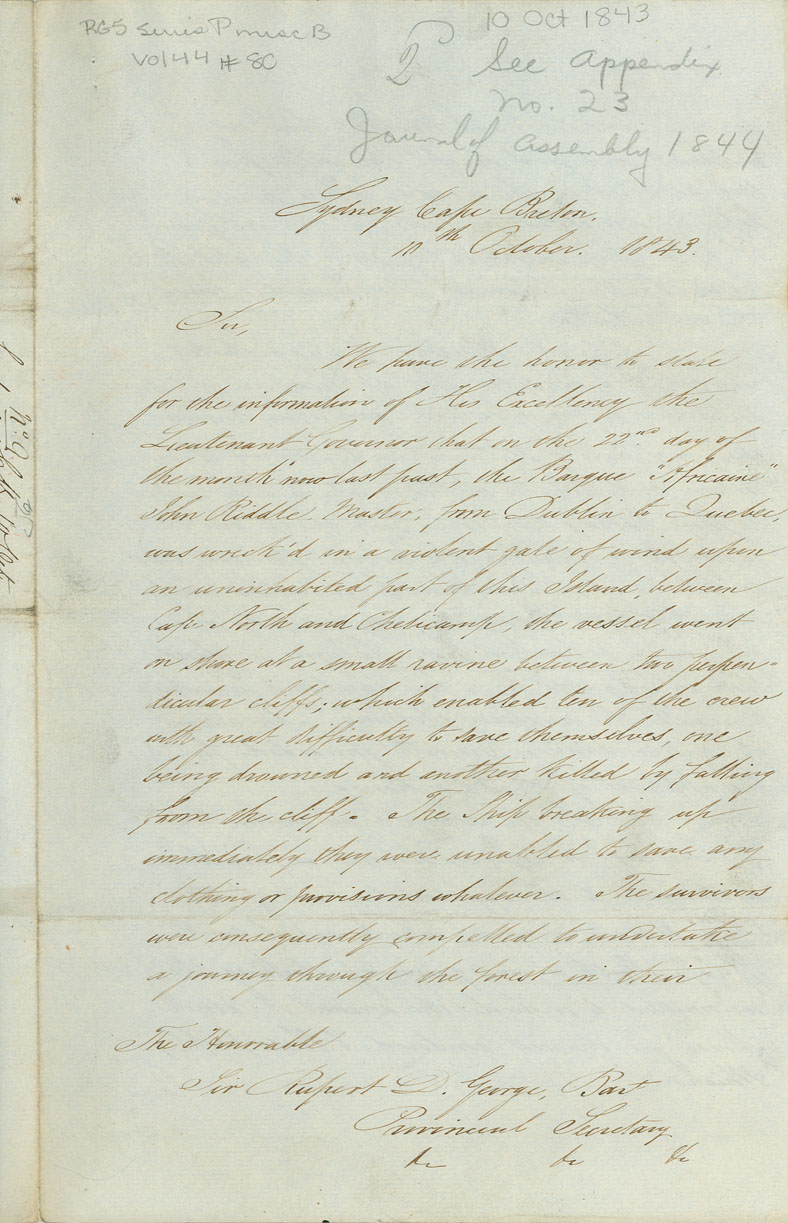 RG5 Series P misc B
Vol 44 # 80
10 Oct 1843
2
See Appendix
No. 23
Journal of Assembly 1844
Sydney Cape Breton.
10th October. 1843.
Sir,
We have the honor to state
for the information of His Excellency the
Lieutenant Governor that on the 22nd day of
the month now last past, the Barque "Africaine"
John Riddle Master, from Dublin to Quebec,
was wreck'd in a violent gale of wind upon
an uninhabited part of this Island, between
Cape North and Cheticamp, the vessel went
on shore at a small ravine between two perpen-
dicular cliffs; which enabled ten of the crew
with great difficulty to save themselves, one
being drowned and another killed by falling
from the cliff. The Ship breaking up
immediately they were unabled to save any
clothing or provisions whatever. The survivors
were consequently compelled to undertake
a journey through the forest in their
The Honorable
Sir Rupert D. George, Bart
Provincial Secretary
&c &c &c